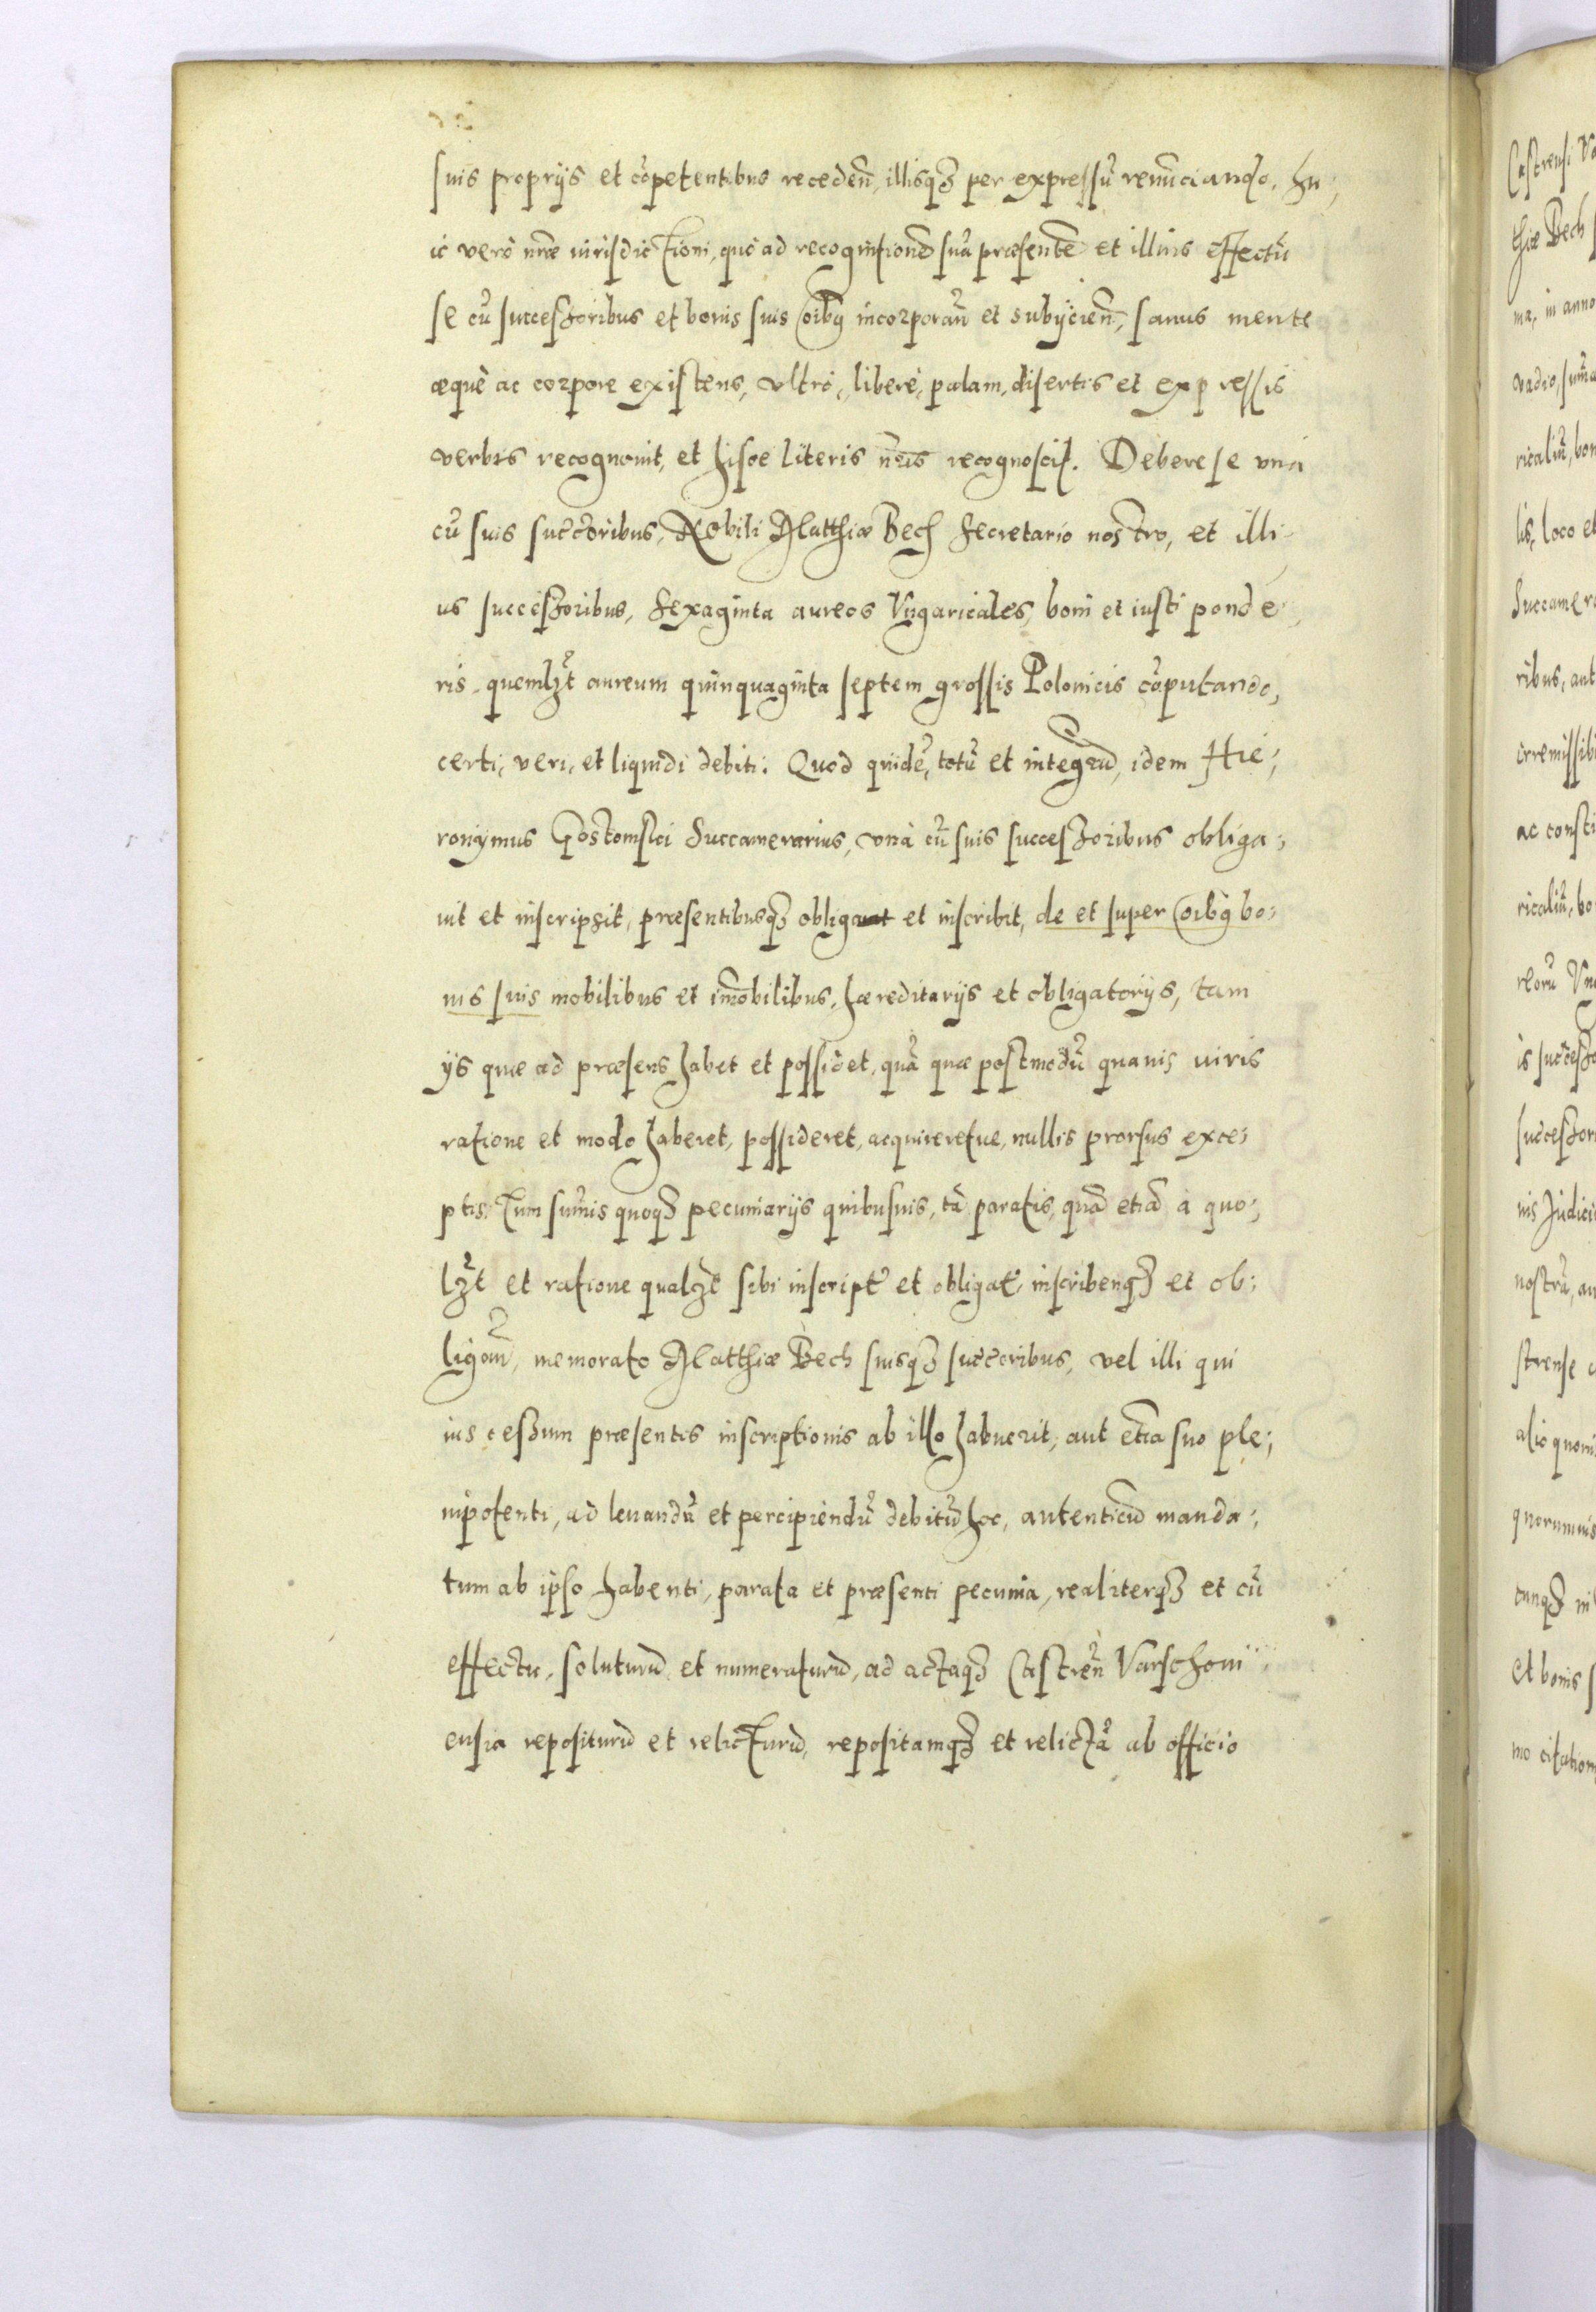 suis proprijs et cōpetentibus recedeñ, illisq₃ per expressū renūciando. hu,
ic verò nrãe iurisdictioni, quò ad recognitionē suā præsentē et illius effectū
se cū successoribus et bonis suis oībꝗ incorporañ et subijcieñ, sanus mente
æquè ac corpore existens, vltrò, liberè, palam, disertis et expressis
verbis recognouit, et hisce literis nr̃is recognoscit. Debere se vnà
cū suis succ̃oribus, Nobili Matthiæ Bech Secretario nostro, et illi,
us successoribus, Sexaginta aureos Vngaricales, boni et iusti ponde,
ris, quemlʒt aureum quinquaginta septem grossis Polonicis cōputando,
certi, veri, et liquidi debiti. Quod quidē, totū et integrū, idem Hie;
ronymus Gostomski Succamerarius, vnà cū suis successoribus obliga;
uit et inscripsit, præsentibusq₃ obligat et inscribit, de et super oībꝗ bo;
nis suis mobilibus et im̃obilibus, hæreditarijs et obligatorijs, tam
ijs quæ ad præsens habet et possidet, quā quæ postmodū quauis iuris
ratione et modo haberet, possideret, acquireretue, nullis prorsus exce;
ptis. Tum sum̃is quoq₃ pecuniarijs quibusuis, tā paratis, quā etiā à quo;
lʒt et ratione qualʒt sibi inscript̃ et obligat̃, inscribenq₃ et ob;
ligañ, memorato Matthiæ Bech suisq₃ succ̃oribus, vel illi qui
ius cessum præsentis inscriptionis ab illo habuerit, aut etiā suo ple;
nipotenti, ad leuandū et percipiendū debitū hoc, autenticū manda;
tum ab ipso habenti, parata et præsenti pecunia, realiterq₃ et cū
effectu, soluturū et numeraturū, ad actaq₃ Castreñ Varschoui
ensia repositurū et relicturū, repositamq₃ et relictā ab officio
Castrensi
thiæ Bech
ma, in anno
vadio, sum̃a
ricaliū, bon
lis, loco et
Succamera
ribus, aut
irremissibi
ac consti
ricaliū, bo
reorū Vn
is success
successor
nis Judici
nostrū, au
strense
alio quoui
quorumuis
cunq₃ in
et bonis s
mo citation